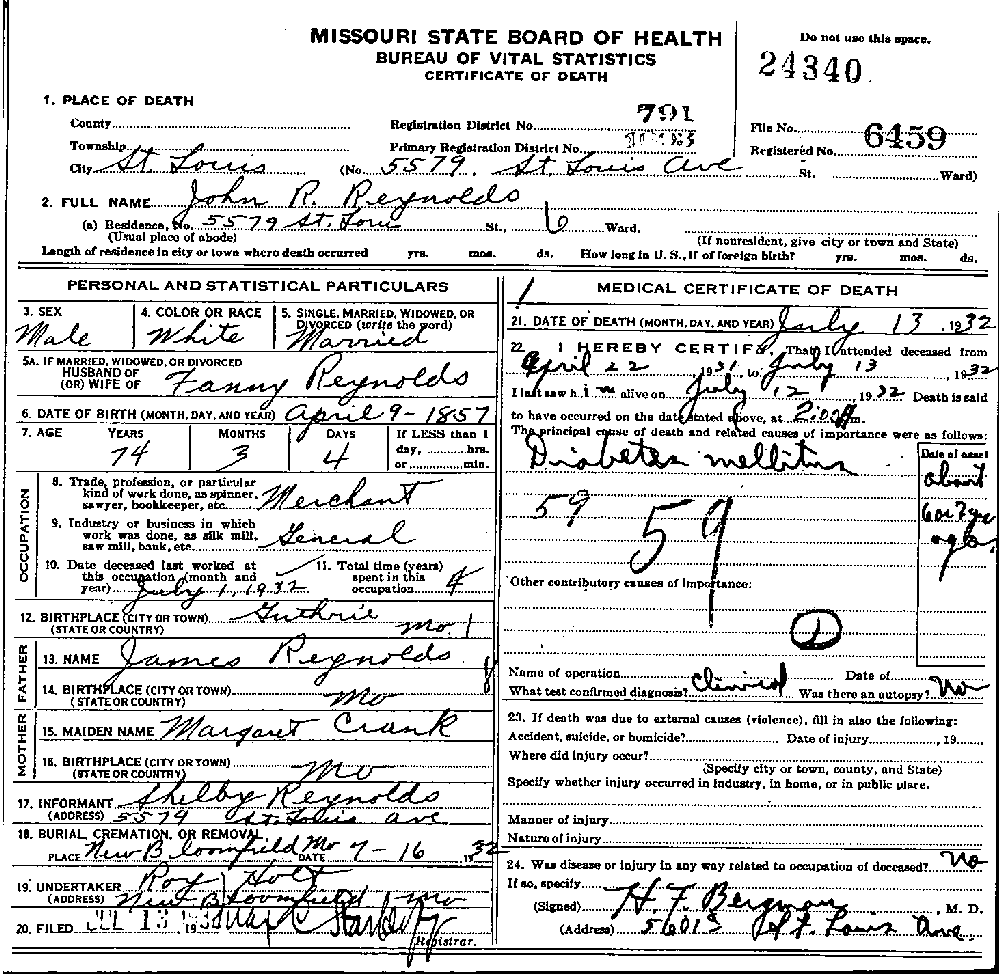 MISSOURI STATE BOARD OF HEALTH
BUREAU OF VITAL STATISTICS
CERTIFICATE OF DEATH
Do not use this space.
24340
1. PLACE OF DEATH
County
Registration District No. 791
File No.
Township
Primary Registration District No.
Registered No. 6459
City St. Louis (No. 5579. St. Louis Ave St. Ward)
2. FULL NAME John R. Reynolds
(a) Residence, No. 5579 St. Loui St., 6 Ward.
(Usual place of abode) (If nonresident, give city or town and State)
Length of residence in city or town where death occurred yrs. mos. ds. How long in U. S., if of foreign birth? yrs. mos. ds.
PERSONAL AND STATISTICAL PARTICULARS
3. SEX 4. COLOR OR RACE 5. SINGLE, MARRIED, WIDOWED, OR DIVORCED (write the word)
Male White Married
5A. IF MARRIED, WIDOWED, OR DIVORCED
HUSBAND OF
(OR) WIFE OF Fanny Reynolds
6. DATE OF BIRTH (MONTH, DAY, AND YEAR) April 9-1857
7. AGE YEARS MONTHS DAYS If LESS than 1
day, hrs.
or min.
74 3 4
OCCUPATION
8. Trade, profession, or particular
kind of work done, as spinner,
sawyer, bookkeeper, etc. Merchant
9. Industry or business in which
work was done, as silk mill,
saw mill, bank, etc. General
10. Date deceased last worked at
this occupation (month and
year) July 1, 1932
11. Total time (years)
spent in this
occupation 4
12. BIRTHPLACE (CITY OR TOWN) Guthrie
(STATE OR COUNTRY) Mo. 1
FATHER
13. NAME James Reynolds
14. BIRTHPLACE (CITY OR TOWN)
(STATE OR COUNTRY) Mo
MOTHER
15. MAIDEN NAME Margaret Crank
16. BIRTHPLACE (CITY OR TOWN)
(STATE OR COUNTRY) Mo
17. INFORMANT Shelby Reynolds
(ADDRESS) 5579 St. Louis ave
18. BURIAL, CREMATION, OR REMOVAL
PLACE New Bloomfield Mo DATE 7-16 1932
19. UNDERTAKER Roy Holt
(ADDRESS) New Bloomfield Mo
20. FILED JUL 13 193
Registrar.
MEDICAL CERTIFICATE OF DEATH
21. DATE OF DEATH (MONTH, DAY, AND YEAR) July 13, 1932
22. I HEREBY CERTIFY, That I attended deceased from
April 22 1931, to July 13, 1932
I last saw him alive on July 12, 1932 Death is said
to have occurred on the date stated above, at m.
The principal cause of death and related causes of importance were as follows:
Diabetes mellitus
Date of onset
about
6 or 7 yrs
ago
59
59
Other contributory causes of importance:
Name of operation Date of
What test confirmed diagnosis? Clinical Was there an autopsy? No
23. If death was due to external causes (violence), fill in also the following:
Accident, suicide, or homicide? Date of injury , 19
Where did injury occur?
(Specify city or town, county, and State)
Specify whether injury occurred in industry, in home, or in public place.
Manner of injury
Nature of injury
24. Was disease or injury in any way related to occupation of deceased? No
If so, specify
(Signed) H. F. Bergman, M. D.
(Address) 5601S St. Louis Ave.